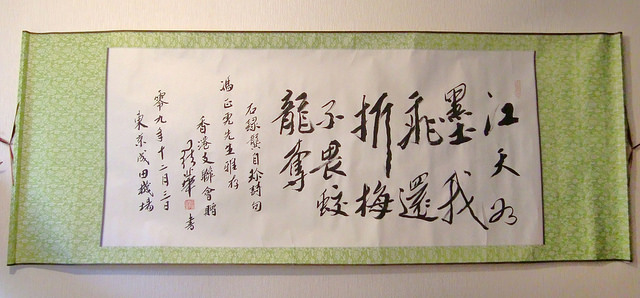 江天如
墨我
飛還
折梅
不畏蛟
龍奪
右録龔自珍詩句
馮正虎先生雅存
香港支聯會贈
司徒華書
零九年十二月三日
東京成田機場